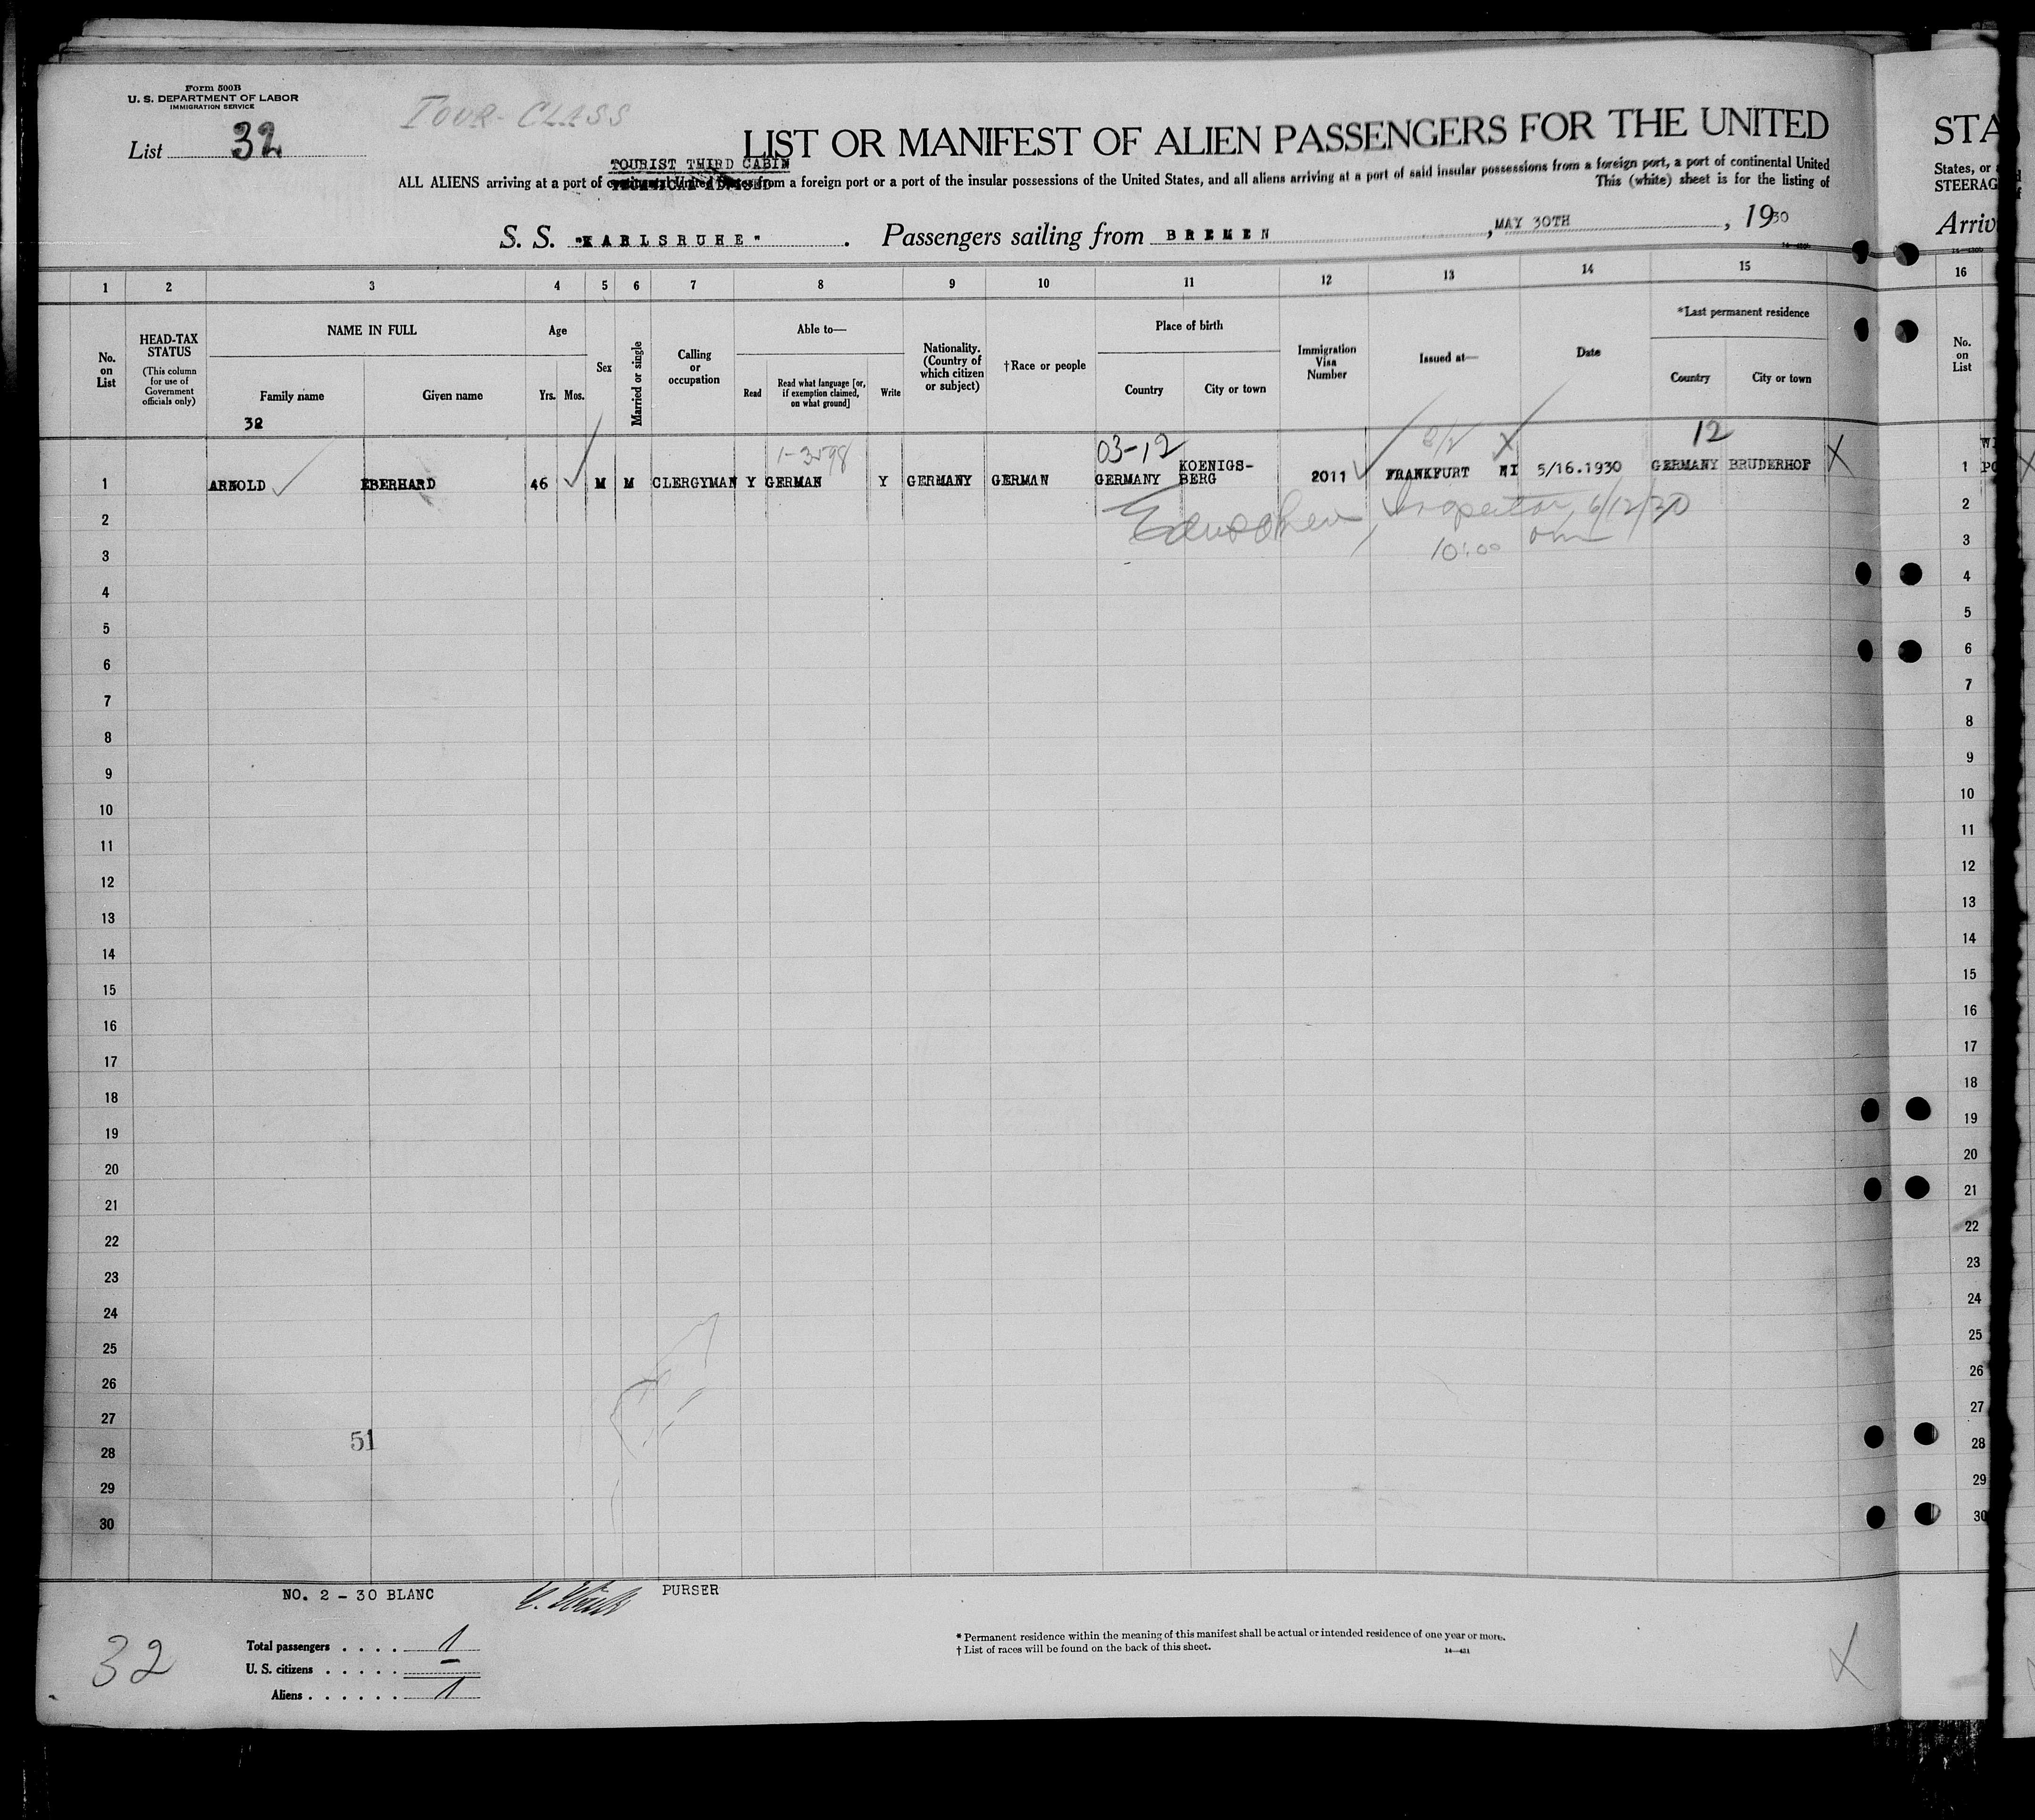 Form 500B
U. S. DEPARTMENT OF LABOR
IMMIGRATION SERVICE
TOUR-CLASS
List 32
LIST OR MANIFEST OF ALIEN PASSENGERS FOR THE UNITED
TOURIST THIRD CABIN
ALL ALIENS arriving at a port of continental United States from a foreign port or a port of the insular possessions of the United States, and all aliens arriving at a port of said insular possessions from a foreign port, a port of continental United
This (white) sheet is for the listing of
S. S. "KARLSRUHE" . Passengers sailing from BREMEN , MAY 30TH , 1930
1 2 3 4 5 6 7 8 9 10 11 12 13 14 15
No. on List
HEAD-TAX STATUS
(This column for use of Government officials only)
NAME IN FULL
Family name Given name
Age
Yrs. Mos.
Sex
Married or single
Calling or occupation
Able to—
Read
Read what language [or, if exemption claimed, on what ground]
Write
Nationality. (Country of which citizen or subject)
†Race or people
Place of birth
Country City or town
Immigration Visa Number
Issued at—
Date
*Last permanent residence
Country City or town
32
1-3598 03-12 12
1 ARNOLD EBERHARD 46 M M CLERGYMAN Y GERMAN Y GERMANY GERMAN GERMANY KOENIGS-BERG 2011 FRANKFURT 5/16.1930 GERMANY BRUDERHOF X
Inspector, 6/12/30
10:00 am
2
3
4
5
6
7
8
9
10
11
12
13
14
15
16
17
18
19
20
21
22
23
24
25
26
27
51
28
29
30
NO. 2 – 30 BLANC
PURSER
32
Total passengers . . . . 1
U. S. citizens . . . . . –
Aliens . . . . . . 1
* Permanent residence within the meaning of this manifest shall be actual or intended residence of one year or more.
† List of races will be found on the back of this sheet.
14—421
X
STA
States, or
STEERAG
Arriv
16
No. on List
1
2
3
4
5
6
7
8
9
10
11
12
13
14
15
16
17
18
19
20
21
22
23
24
25
26
27
28
29
30